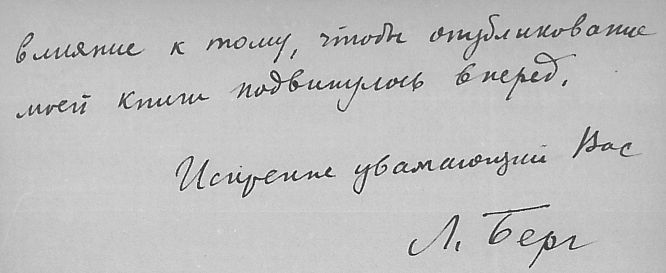 влияние к тому, чтобы опубликование
моей книги подвинулось вперед.
Искренне уважающий Вас
Л. Берг